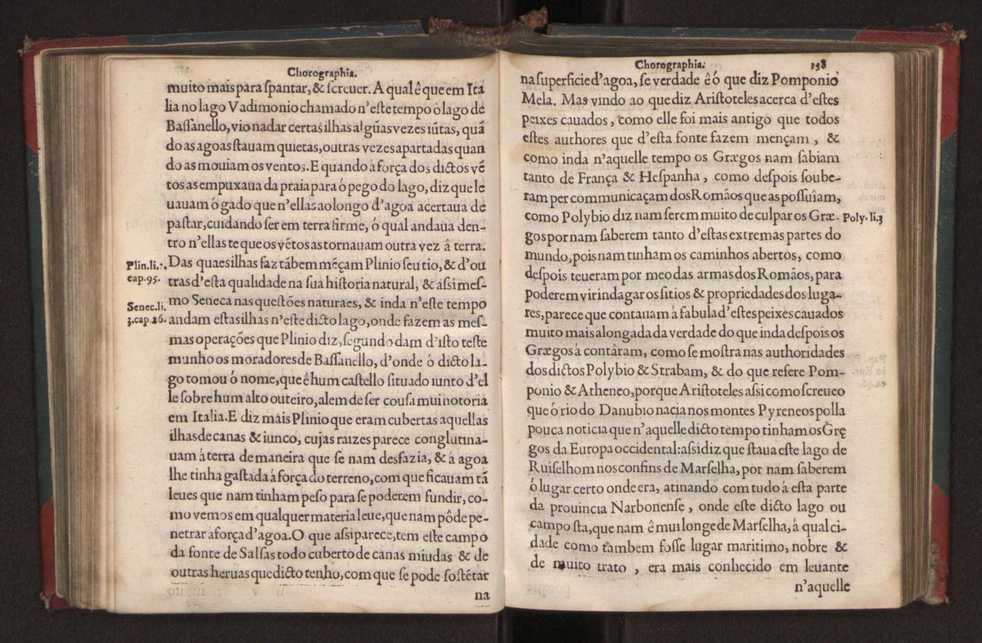 Chorographia.
muito mais para spantar, & screuer. A qual é que em Itá
lia no lago Vadimonio chamado n'este tempo ó lago de
Bassanello, vio nadar certas ilhas algũas vezes iũtas, quã
do as agoas stauam quietas, outras vezes apartadas quan
do as mouiam os ventos. E quando à força dos dictos vẽ
tos as empuxaua da praia para ó pego do lago, diz que le
uauam ó gado que n'ellas ao longo d'agoa acertaua de
pastar, cuidando ser em terra firme, ó qual andaua den-
tro n'ellas te que os vẽtos as tornauam outra vez â terra.
Plin.li.
cap.95.
Das quaes ilhas faz tãbem mẽçam Plinio seu tio, & d'ou
tras d'esta qualidade na sua historia natural, & assi mes-
Senec.li.
3.cap.26.
mo Seneca nas questões naturaes, & inda n'este tempo
andam estas ilhas n'este dicto lago, onde fazem as mes-
mas operações que Plinio diz, segundo dam d'isto teste
munho os moradores de Bassanello, d'onde ó dicto la-
go tomou ó nome, que é hum castello situado iunto d'el
le sobre hum alto outeiro, alem de ser cousa mui notoria
em Italia. E diz mais Plinio que eram cubertas aquellas
ilhas de canas & iunco, cujas raizes parece conglutina-
uam á terra de maneira que se nam desfazia, & à agoa
lhe tinha gastada á força do terreno, com que ficauam tã
leues que nam tinham peso para se poderem fundir, co-
mo vemos em qualquer materia leue, que nam pôde pe-
netrar à força d'agoa. O que assi parece, tem este campo
da fonte de Salsas todo cuberto de canas miudas & de
outras heruas que dicto tenho, com que se pode sostẽtar
na
Chorographia. 158
na superficie d'agoa, se verdade é ó que diz Pomponio
Mela. Mas vindo ao que diz Aristoteles acerca d'estes
peixes cauados, como elle foi mais antigo que todos
estes authores que d'esta fonte fazem mençam, &
como inda n'aquelle tempo os Grægos nam sabiam
tanto de França & Hespanha, como despois soube-
ram per communicaçam dos Romãos que as possuiam,
como Polybio diz nam serem muito de culpar os Græ-
Poly.li.3
gos por nam saberem tanto d'estas extremas partes do
mundo, pois nam tunham os caminhos abertos, como
despois teueram por meo das armas dos Romãos, para
poderem vir indagar os sitios & propriedades dos luga-
res, parece que contauam à fabula d'estes peixes cauados
muito mais alongada da verdade do que inda despois os
Grægos à contâram, como se mostra nas authoridades
dos dictos Polybio & Strabam, & do que refere Pom-
ponio & Atheneo, porque Aristoteles assi como screueo
que ó rio do Danubio nacia nos montes Pyreneos polla
pouca noticia que n'aquelle dicto tempo tinham os Grę
gos da Europa occidental: assi diz que staua este lago de
Ruiselhom nos confins de Marselha, por nam saberem
ó lugar certo onde era, atinando com tudo à esta parte
da prouincia Narbonense, onde este dicto lago ou
campo sta, que nam é mui longe de Marselha, à qual ci-
dade como tambem fosse lugar maritimo, nobre &
de muito trato, era mais conhecido em leuante
n'aquelle